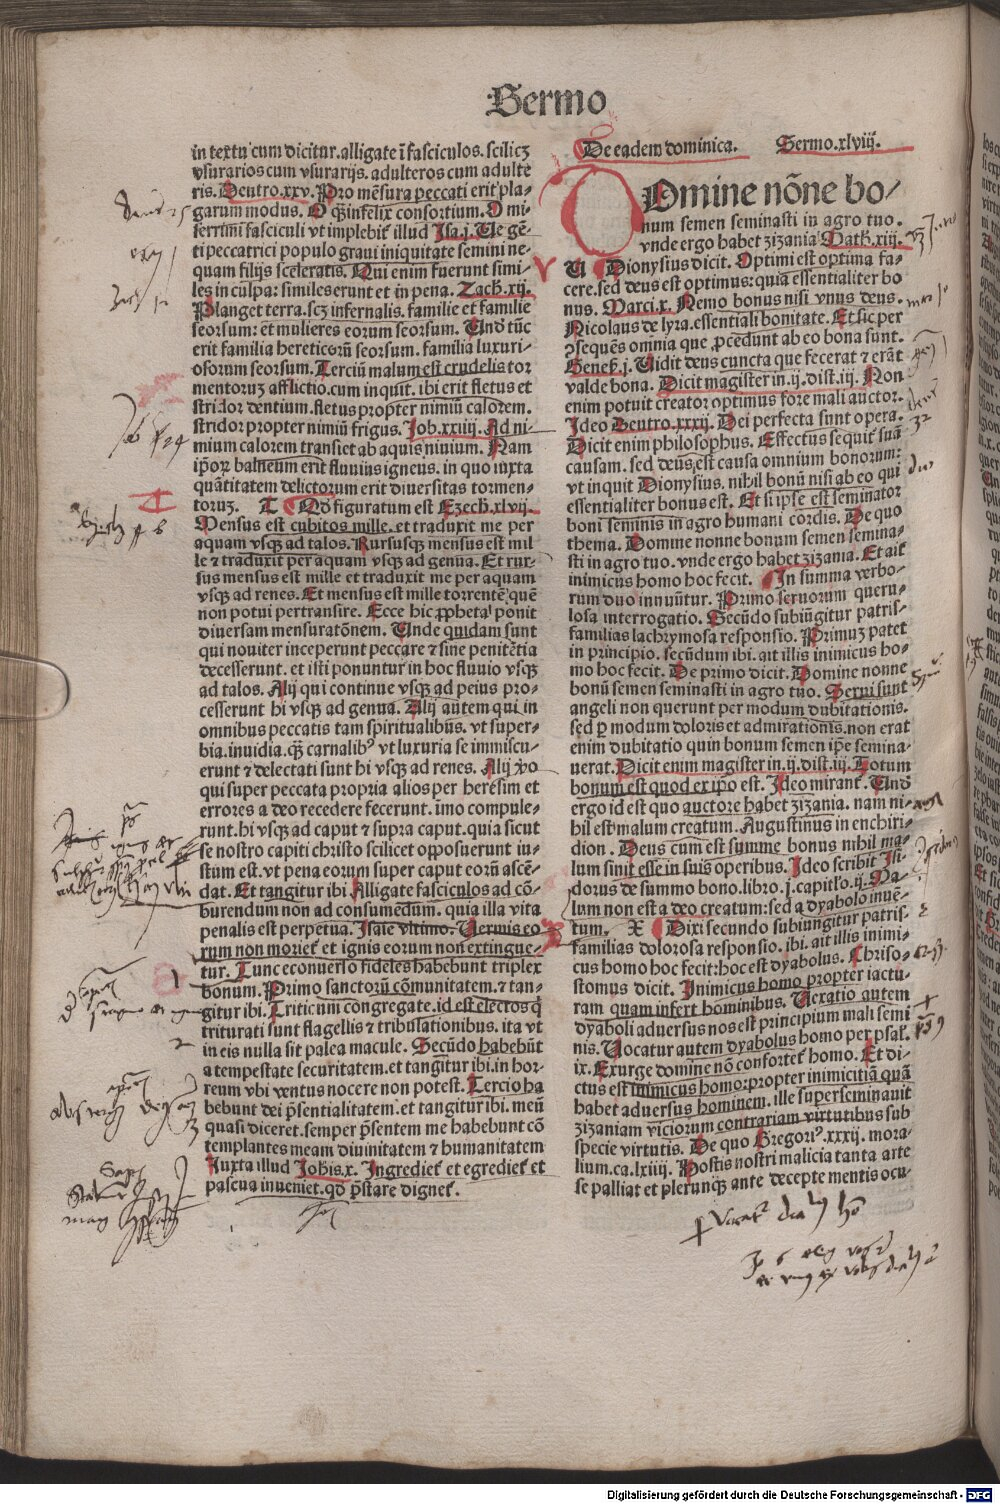 Sermo
in textu cum dicitur. alligate ī fasciculos. scilicʒ
vsurarios cum vsurarijs. adulteros cum adulte
ris. Deutro.xxv. Pro mēsura peccati erit pla-
garum modus. O q̄ infelix consortium. O mi-
serrimi fasciculi vt implebit᷑ illud Isa.j. Ue gē-
ti peccatrici populo graui iniquitate semini ne-
quam filijs sceleratis. Qui enim fuerunt simi-
les in culpa: similes erunt et in pena. Zach.xij.
Planget terra. scʒ infernalis. familie et familie
seorsum: ēt mulieres eorum seorsum. Und tūc
erit familia hereticorū seorsum. familia luxuri-
osorum seorsum. Terciū malum est crudelis tor
mentoruʒ afflictio. cum inquit. ibi erit fletus et
stridor dentium. fletus propter nimiū calorem.
stridor propter nimiū frigus. Job.xxiiij. Ad ni-
mium calorem transiet ab aquis niuium. Nam
ip̄oꝝ balneum erit fluuius igneus. in quo iuxta
quātitatem delictorum erit diuersitas tormen-
toruʒ. T Qd̄ figuratum est Ezech.xlvij.
Mensus est cubitos mille. et traduxit me per
aquam vsqꝫ ad talos. Rursusqꝫ mensus est mil
le ⁊ traduxit per aquam vsqꝫ ad genua. Et rur-
sus mensus est mille et traduxit me per aquam
vsqꝫ ad renes. Et mensus est mille torrentē quē
non potui pertransire. Ecce hic ꝓpheta ponit
diuersam mensuratōnem. Unde quidam sunt
qui nouiter inceperunt peccare ⁊ sine penitētia
decesserunt. et isti ponuntur in hoc fluuio vsqꝫ
ad talos. Alij qui continue vsqꝫ ad peius pro-
cesserunt hi vsqꝫ ad genua. Alij autem qui in
omnibus peccatis tam spiritualibus. vt super-
bia. inuidia. qꝫ carnalibꝰ vt luxuria se immiscu-
erunt ⁊ delectati sunt hi vsqꝫ ad renes. Alij v̄o
qui super peccata propria alios per heresim et
errores a deo recedere fecerunt. īmo compule-
runt. hi vsqꝫ ad caput ⁊ supra caput. quia sicut
se nostro capiti christo scilicet opposuerunt iu-
stum est. vt pena eorum super caput eorū ascē-
dat. Et tangitur ibi Alligate fasciculos ad cō-
burendum non ad consumedum. quia illa vita
penalis est perpetua. Isaie vltimo. Uermis eo
rum non moriet᷑ et ignis eorum non extingue-
tur. Tunc econuerso fideles habebunt triplex
bonum. Primo sanctorū cōmunitatem. ⁊ tan-
gitur ibi. Triticum congregate. id est electos q̄
triturati sunt flagellis ⁊ tribulationibus. ita vt
in eis nulla sit palea macule. Secūdo habebūt
a tempestate securitatem. et tangitur ibi. in hor-
reum vbi ventus nocere non potest. Tercio ha
bebunt dei p̄sentialitatem: et tangitur ibi. meū
quasi diceret. semper p̄sentem me habebunt cō
templantes meam diuinitatem ⁊ humanitatem
Iuxta illud Joh̄is.x. Ingrediet᷑ et egrediet᷑ et
pascua inueniet. qd̄ p̄stare dignet᷑.
De eadem dominica. Sermo.xlviij.
Domine nōne bo-
num semen seminasti in agro tuo.
vnde ergo habet zizania Math.xiij.
U Dionysius dicit. Optimi est optima fa-
cere. sed deus est optimus: quia essentialiter bo
nus. Marci.x. Nemo bonus nisi vnus deus.
Nicolaus de lyra. essentiali bonitate. Et sic per
ꝯsequēs omnia que ꝓcedunt ab eo bona sunt.
Genes̄.j. Uidit deus cuncta que fecerat ⁊ erāt
valde bona. Dicit magister in.ij.dist.iij. Non
enim potuit creator optimus fore mali auctor.
Ideo Deutro.xxxij. Dei perfecta sunt opera.
Dicit enim philosophus. Effectus sequit᷑ suā
causam. sed deus est causa omnium bonorum:
vt inquit Dionysius. nihil bonū nisi ab eo qui
essentialiter bonus est. Et si ipse est seminator
boni seminis in agro humani cordis. De quo
thema. Domine nonne bonum semen semina-
sti in agro tuo. vnde ergo habet zizania. Et ait
inimicus homo hoc fecit. In summa verbo-
rum duo innuūtur. Primo seruorum queru-
losa interrogatio. Secūdo subiūgitur patris-
familias lachrymosa responsio. Primuʒ patet
in principio. secūdum ibi. ait illis inimicus ho-
mo hoc fecit. De primo dicit. Domine nonne
bonū semen seminasti in agro tuo. Serui sunt
angeli non querunt per modum dubitationis.
sed ꝑ modum doloris et admirationis. non erat
enim dubitatio quin bonum semen ip̄e semina-
uerat. Dicit enim magister in.ij.dist.iij. Totum
bonum est quod ex ip̄o est. Ideo mirant᷑. Und
ergo id est quo auctore habet zizania. nam ni-
hil est malum creatum. Augustinus in enchiri-
dion. Deus cum est summe bonus nihil ma-
lum sinit esse in suis operibus. Ideo scribit Isi-
dorus de summo bono. libro.j.capit̄lo.ij. Ma-
lum non est a deo creatum: sed a dyabolo inuē-
tum. X Dixi secundo subiungitur patris-
familias dolorosa responsio. ibi. ait illis inimi-
cus homo hoc fecit: hoc est dyabolus. Chriso-
stomus dicit. Inimicus homo propter iactu-
ram quam infert hominibus. Uexatio autem
dyaboli aduersus nos est principium mali semi
nis. Uocatur autem dyabolus homo per psal.
ix. Exurge domine nō confortet᷑ homo. Et di-
ctus est inimicus homo: propter inimicitiā quā
habet aduersus hominem. ille superseminauit
zizaniam viciorum contrariam virtutibus sub
specie virtutis. De quo Gregoriꝰ.xxxij. mora-
lium.ca.lxiiij. Hostis nostri malicia tanta arte
se palliat et plerunqꝫ ante decepte mentis ocu-
Digitalisierung gefördert durch die Deutsche Forschungsgemeinschaft - DFG